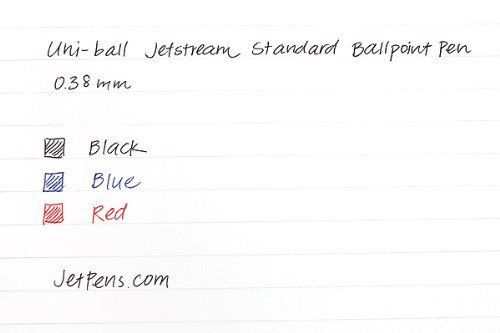 Uni-ball Jetstream Standard Ballpoint Pen
0.38 mm
Black
Blue
Red
JetPens.com